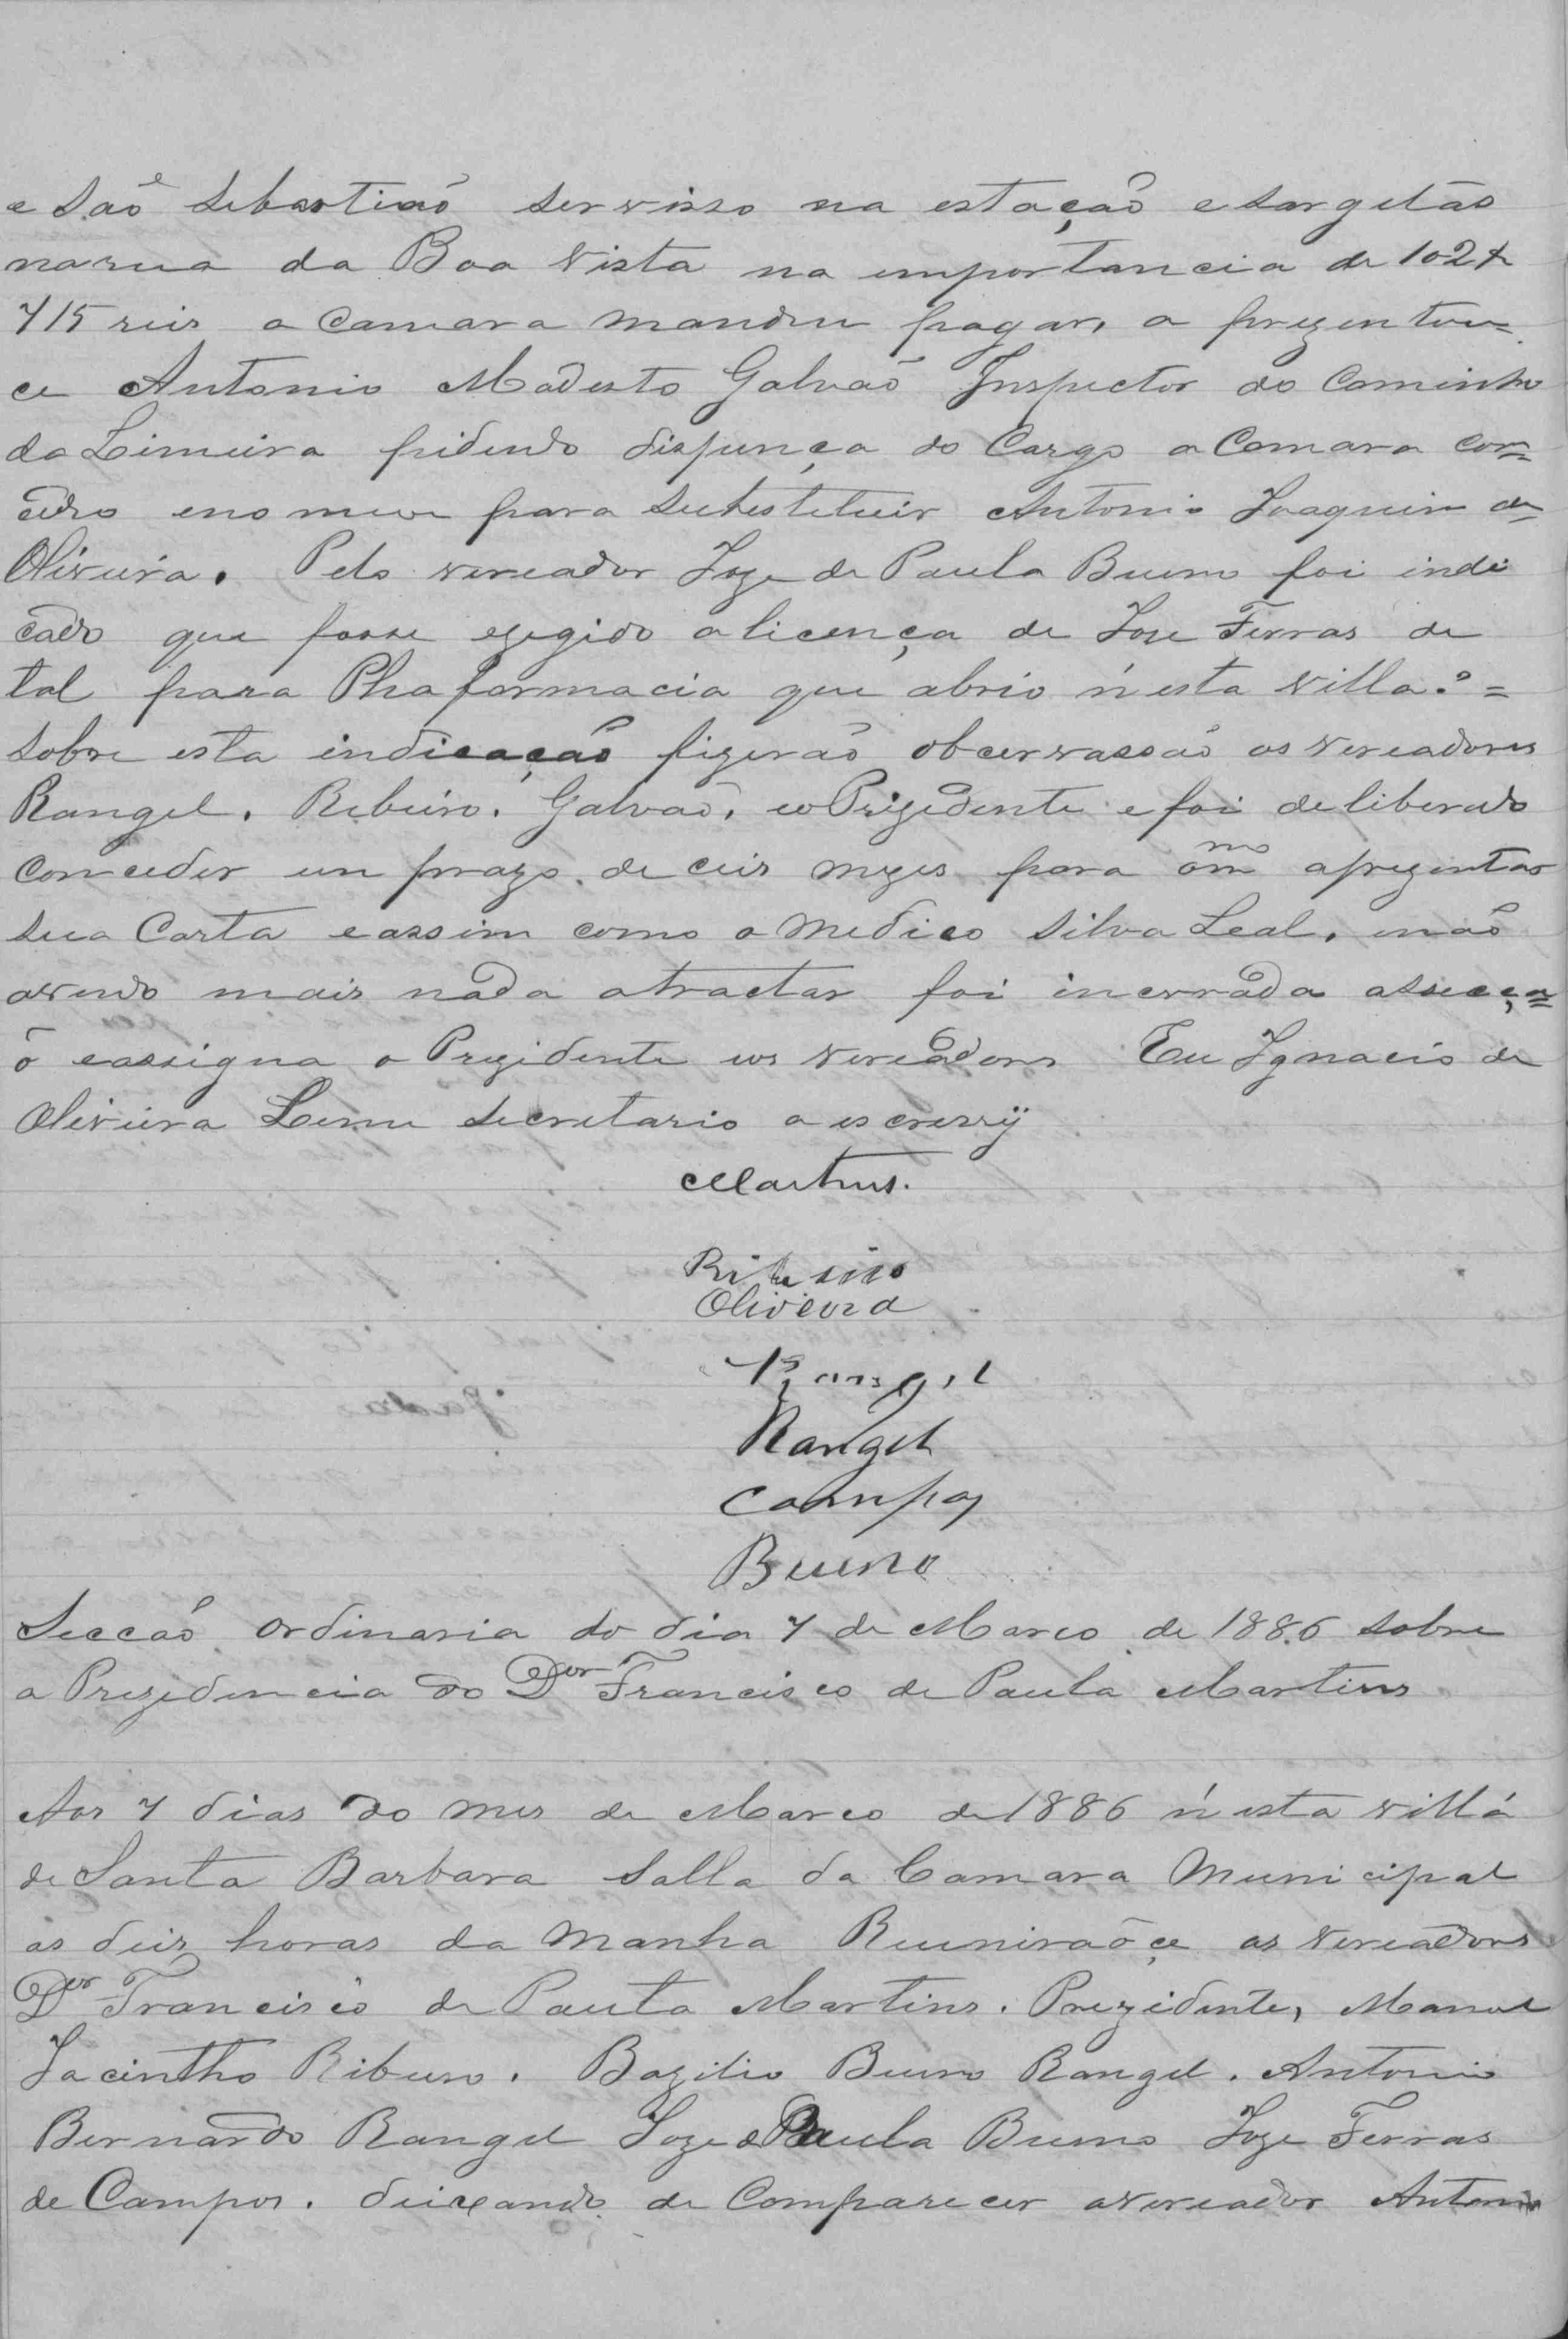 e São Sebastião servisso na estação e sargetas
na rua da Boa Vista na importancia de 102$
715 reis a Camara mandou pagar, a prezentou=
ce Antonio Modesto Galvão Inspector do Caminho
da Limeira pidindo dispença do Cargo a Camara con=
cedeo e nomeou para substetuir Antonio Joaquim de
Oliveira. Pelo vereador Joze de Paula Bueno foi indi
cado que fosse ezegido a licença de Jose Ferras de
tal para Phaformacia que abrio n'esta Villa. =
sobre esta indicação fizerão obcervassão os Vereadores
Rangel. Ribeiro. Galvão. eo Prizedente e foi deliberado
Conceder um prazo de ceis mezes para o mmo aprezentar
sua Carta e assim como o Medico Silva Leal. e não
avendo mais nada a tractar foi incerrada a sseça=
õ e assigna o Prezidente eos Vereadores Eu Ignacio de
Oliveira Leme Secretario a escrevy
Martins.
Ribeiro
Oliveira
Rangel
Rangel
Campos
Bueno
Seccão Ordinaria do dia 7 de Marco de 1886 sobre
a Prezidencia do Dor Francisco de Paula Martins
Aos 7 dias do mes de Marco de 1886 n'esta villa
de Santa Barbara Salla da Camara Municipal
as deis horas da Manha Reunirão ce os Vereadores
Dor Francisco de Paula Martins. Prezidente, Manoel
Jacintho Ribeiro. Bazilio Bueno Rangel. Antonio
Bernardo Rangel Joze de Paula Bueno Joze Ferras
de Campos. deixando de Comparecer o vereador Antonio